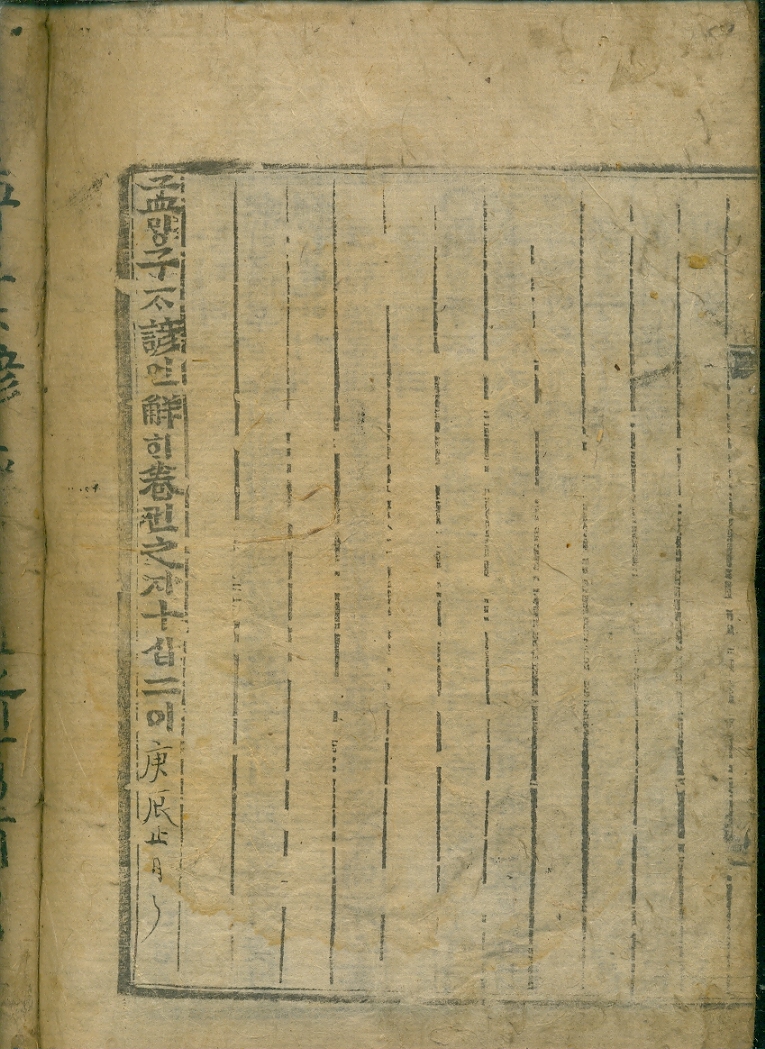 孟ᄆᆡᆼ子ᄌᆞ諺언解ᄒᆡ卷권之지十십二이 庚辰正月